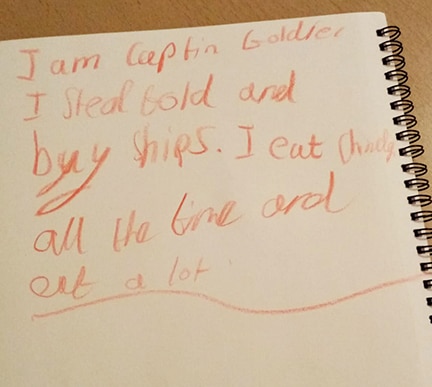 I am Captin Goldier
I Steal Gold and
buy Ships. I eat
all the time and
eat a lot